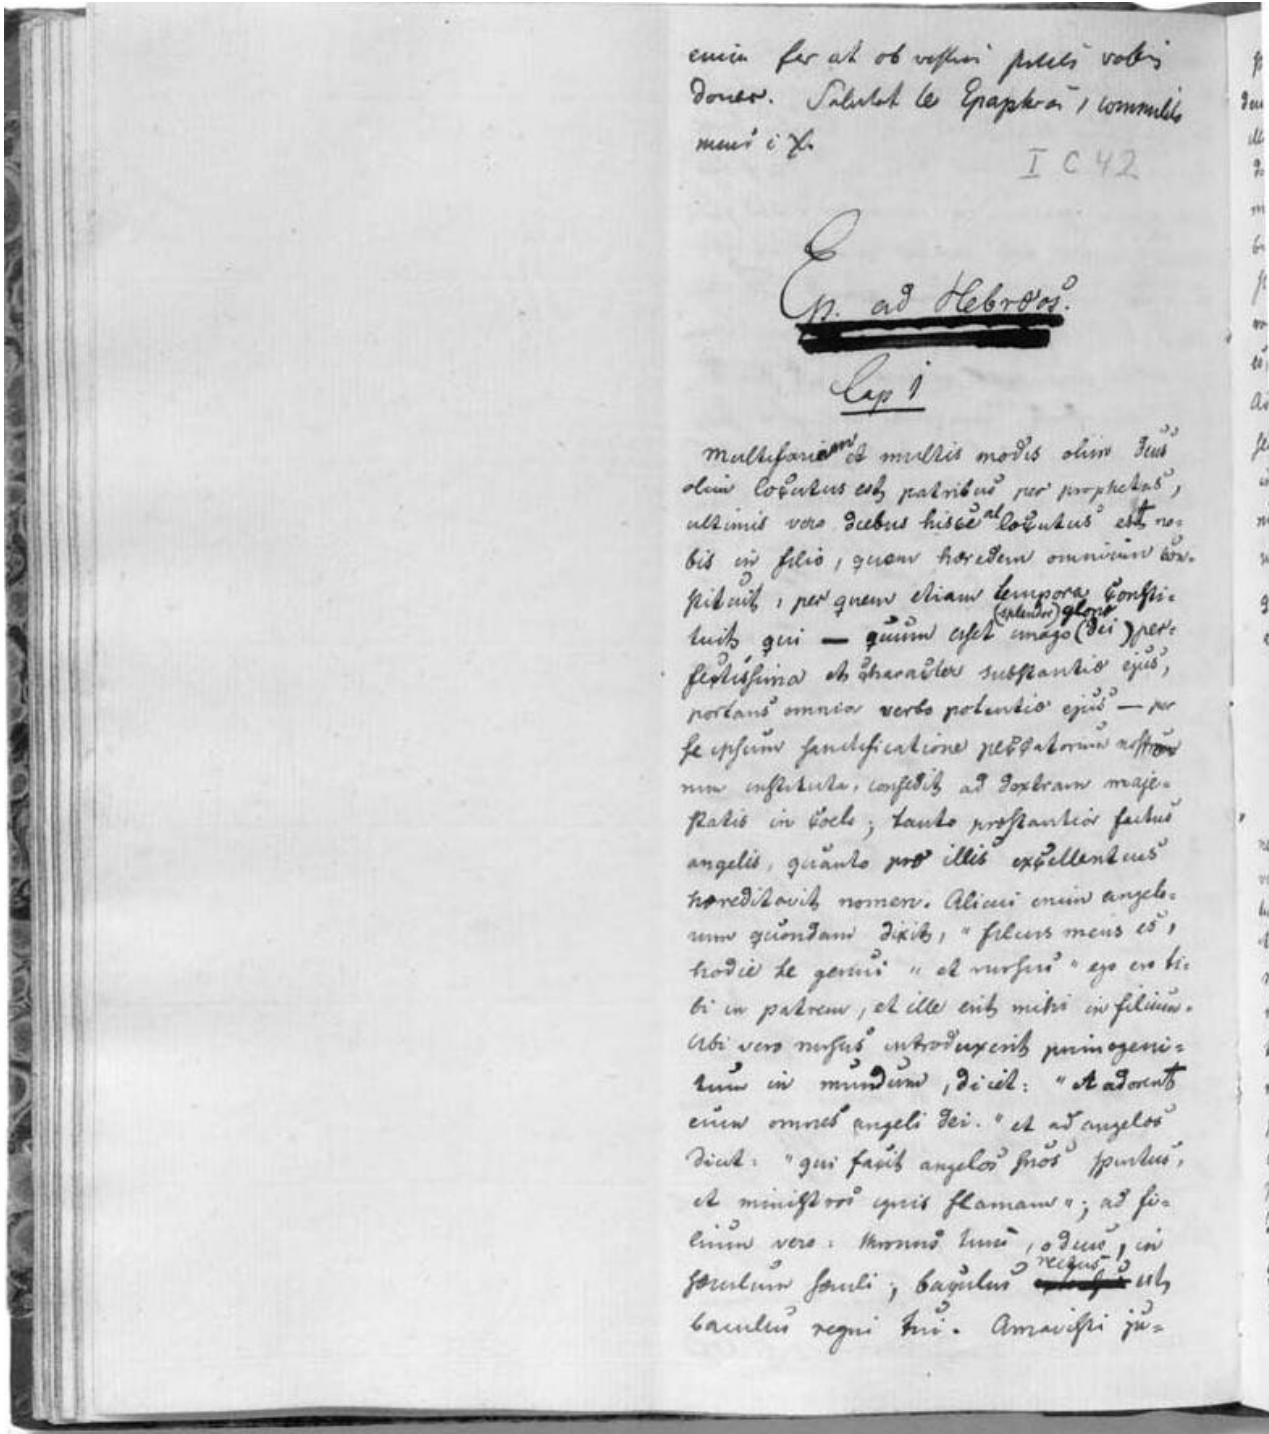 enim fore ut ob vestras preces vobis
doner. Salutat te Epaphras, commilito
meus i X.
I C 42
Ep. ad Hebræos.
Cap 1
Multifariam et multis modis olim Deus
olim locutus est patribus per prophetas,
ultimis vero diebus hisce al locutus est no-
bis in filio, quem hæredem omnium con-
stituit, per quem etiam tempora consti-
(splendor) gloriæ
tuit, qui — quum esset imago (dei) per-
fectissima et character substantiæ ejus,
portans omnia verbo potentiæ ejus — per
se ipsum sanctificatione peccatorum nostro-
rum instituta, consedit ad dextram maje-
statis in coelo; tanto præstantior factus
angelis, quanto præ illis excellentius
hæreditavit nomen. Alicui enim angelo-
rum quondam dixit, "filius meus es,
hodie te genui" et rursus "ego ero ti-
bi in patrem, et ille erit mihi in filium.
Ubi vero rursus introduxerit primogeni-
tum in mundum, dicit: "Et adorent
eum omnes angeli dei." et ad angelos
dicit: "qui facit angelos suos spiritus,
et ministros ignis flamam"; ad fi-
lium vero: thronus tuus, o deus, in
sæculum sæculi; baculus rectus est
baculus regni tui. Amavisti ju-